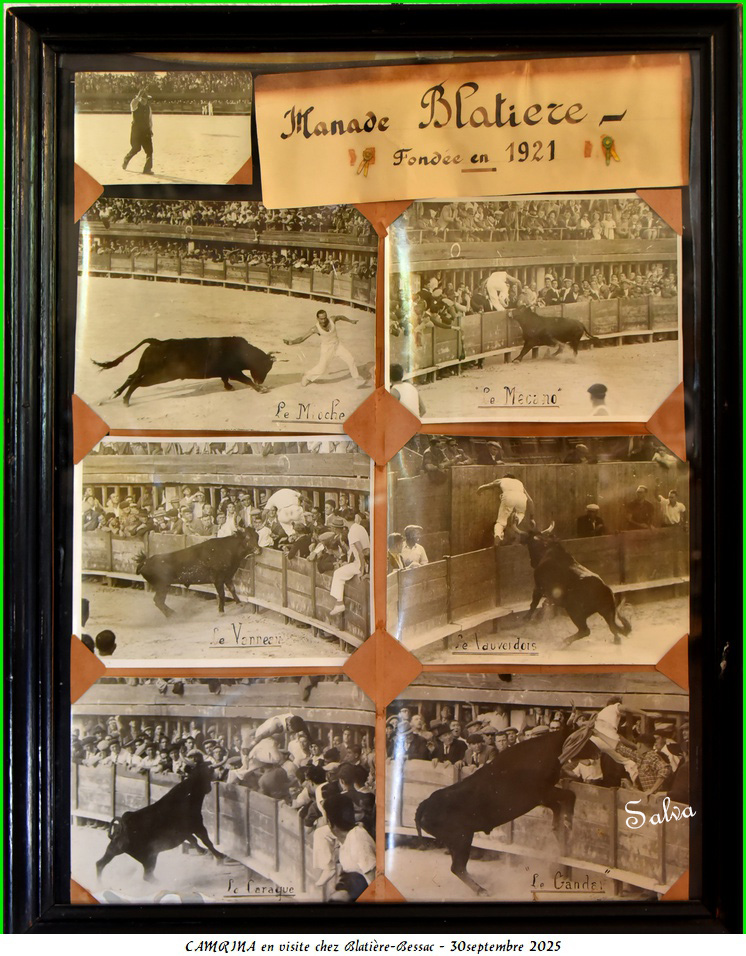 Manade Blatiere -
Fondée en 1921
Le Mioche
"Le Mecano"
Le Vanneau
Le Vauverdois
Le Caraque
"Le Gandar"
Salva
CAMRINA en visite chez Blatière-Bessac - 30septembre 2025